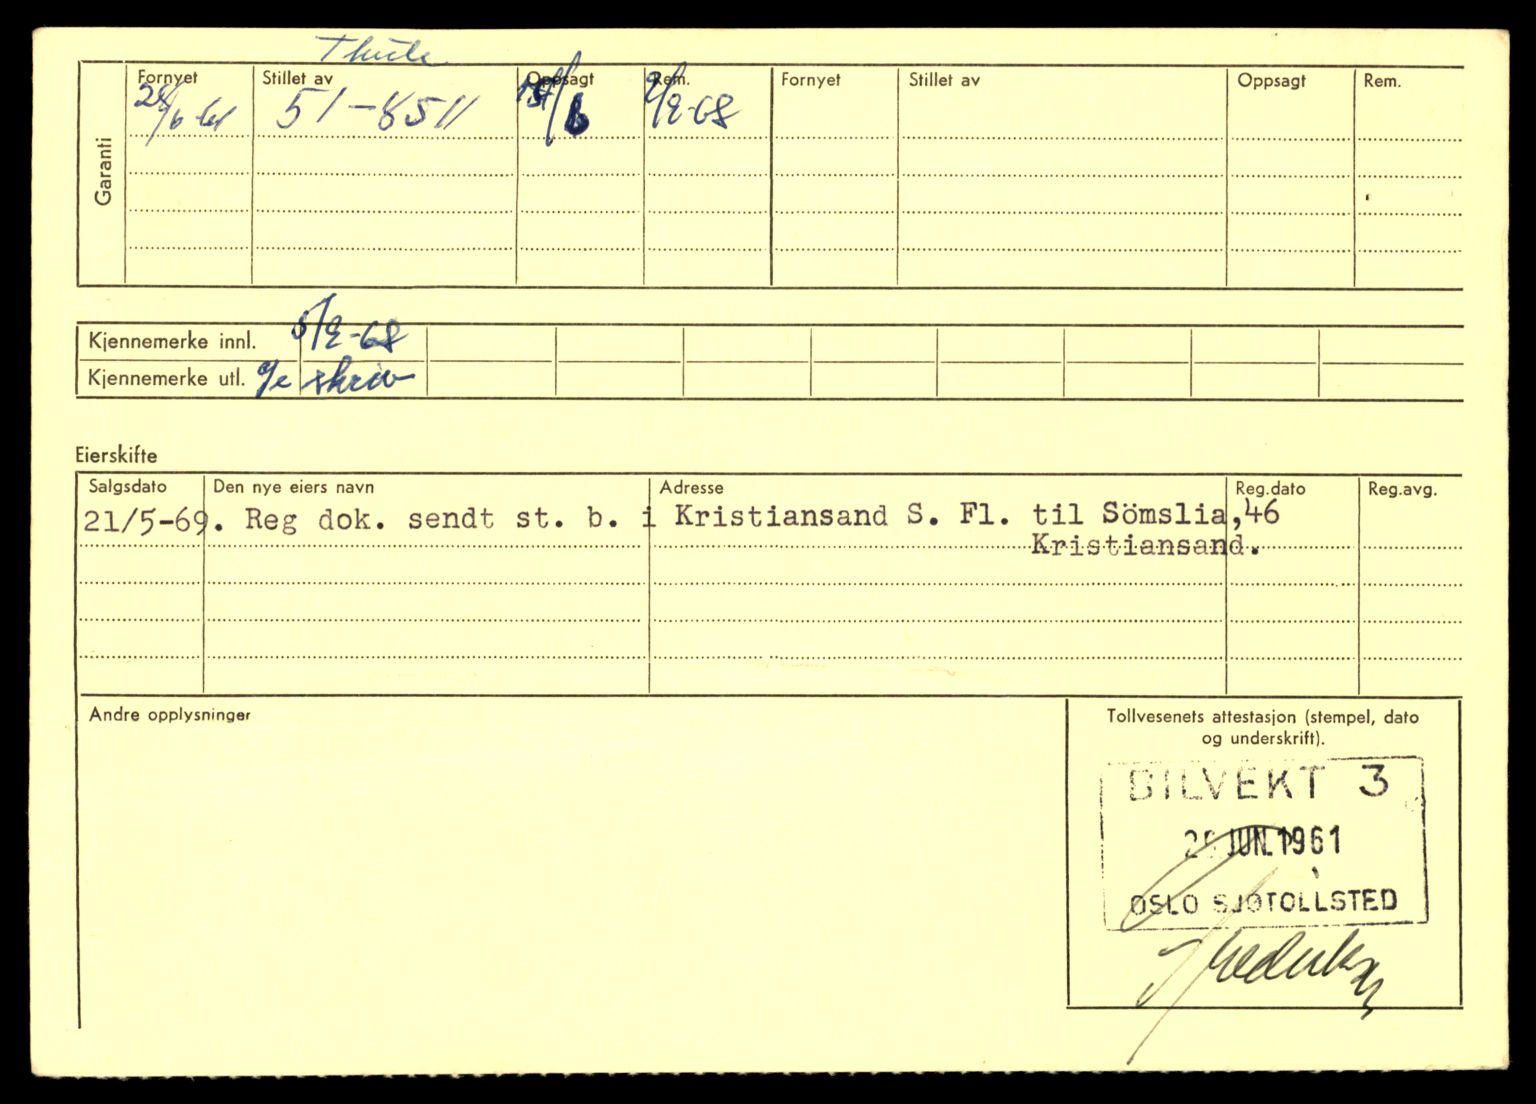 Thule
Fornyet Stillet av Oppsagt Rem. Fornyet Stillet av Oppsagt Rem.
28/6-61 51-8511 2/9-68
Garanti
Kjennemerke innl. 5/9-68
Kjennemerke utl.
Eierskifte
Salgsdato Den nye eiers navn Adresse Reg.dato Reg.avg.
21/5-69. Reg dok. sendt st. b. i Kristiansand S. Fl. til Sömslia,46
Kristiansand.
Andre opplysninger
Tollvesenets attestasjon (stempel, dato
og underskrift).
BILVEKT 3
JUN. 1961
OSLO SJØTOLLSTED